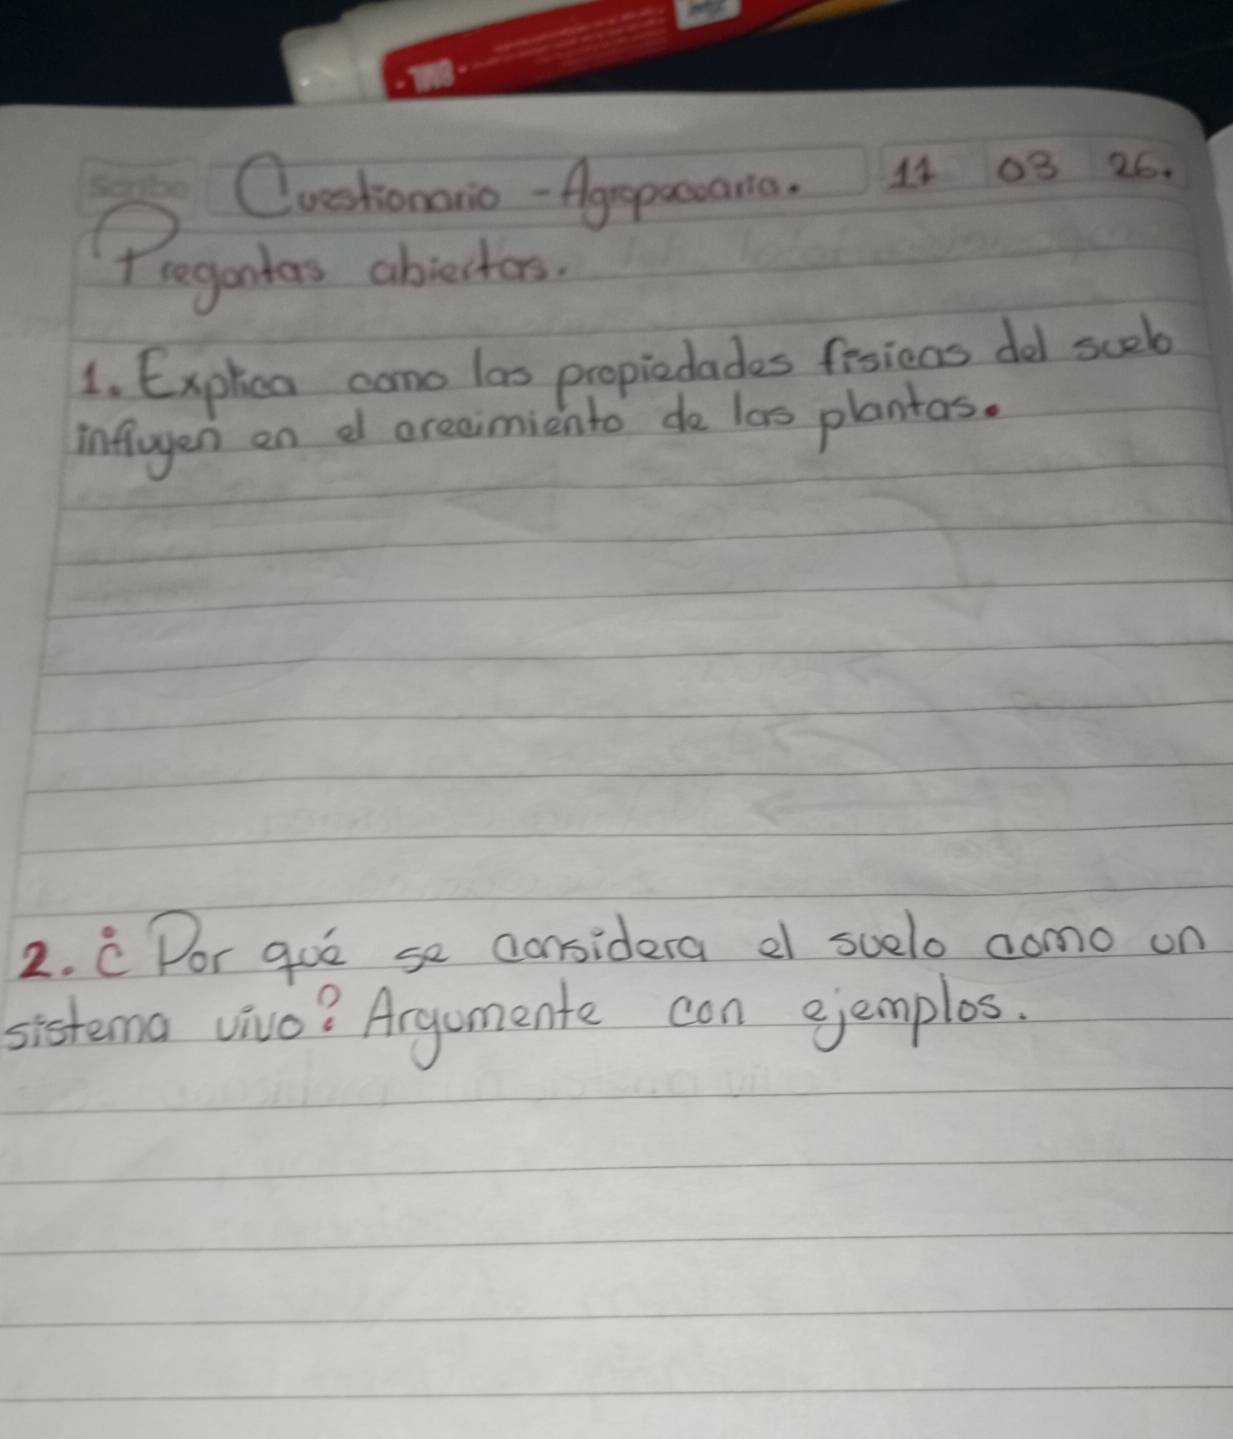 Cuestionario - Agropecuaria. 11 03 26.
Preguntas abiertas.
1. Explica como las propiedades físicas del suelo
influyen en el crecimiento de las plantas.
2. ¿Por qué se considera el suelo como un
sistema vivo? Argumente con ejemplos.